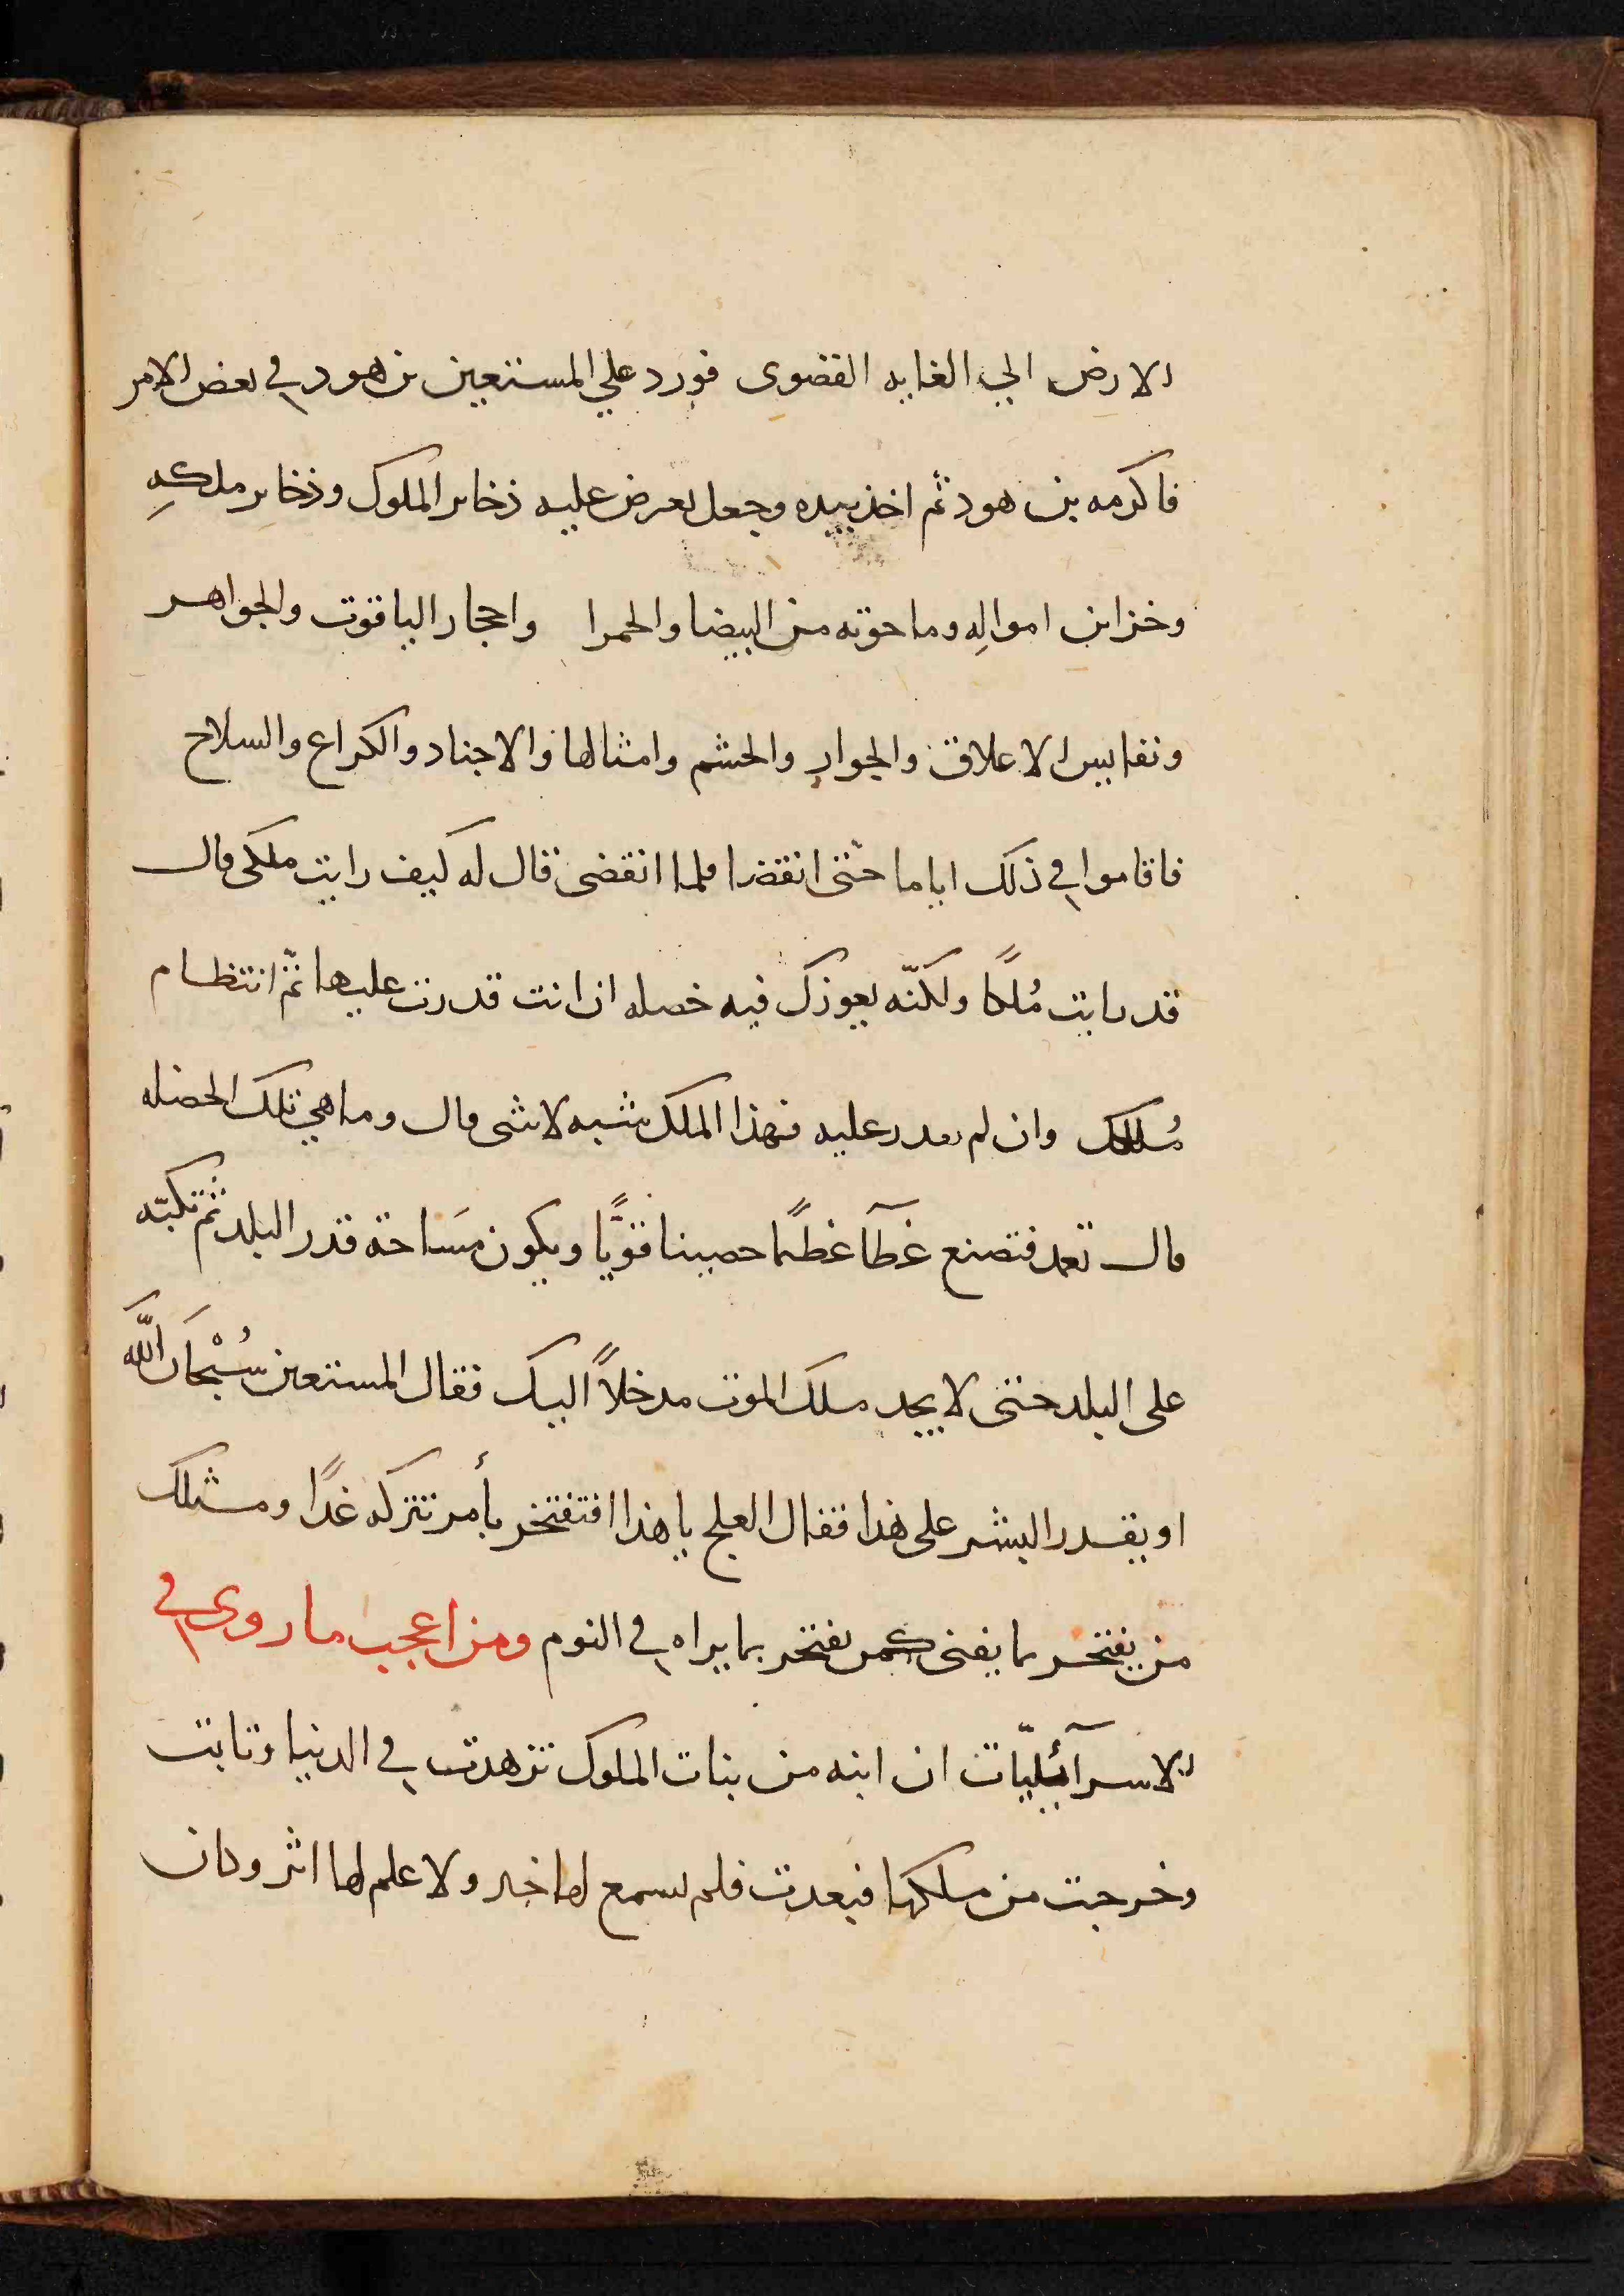 الارض الي الغايه القضوى فورد علي المستعين بن هود في بعض الامر
فاكرمه بن هود ثم اخذ بيده وجعل يعرض عليه ذخاير الملوك وذخاير ملكهِ
وخزاين اموالِه وما حوته من البيضا والحمرا واحجار الياقوت والجواهر
ونفاييس الاعلاق والجوارِ والحشم وامثالها والاجناد والكراع والسلاح
فاقاموا في ذلك اياما حتى انقضرا فلما انقضى قال له كيف رايت ملكى قال
قد رايت مُلكًا ولكنّه يعوزك فيه خصله ان انت قدرت عليها تمّ انتظام
مُلكك وان لم تقدر عليه فهذا الملك شبه لاشى قال وما هي تلك الخصله
قال تعمد فتصنع غطآ عظيمًا حصينا قويًّا ويكون مَساحة قدر البلد ثم تكبّه
على البلد حتى لا يجد ملك الموت مدخلاً اليك فقال المستعين سُبْحَان اللَّه
او يقدر البشر على هذا فقال العلج يا هذا افتفتخر بأمر تتركه غدًا ومثلك
من يفتخر بما يفنى كمن يفتخر بما يراه في النوم ومن اعجب ما روى في
الاسرآئليّات ان ابنه من بنات الملوك تزهدت في الدنيا وتابت
وخرجت من ملكها فبعدت فلم يسمع لها خبر ولا علم لها اثر وكان